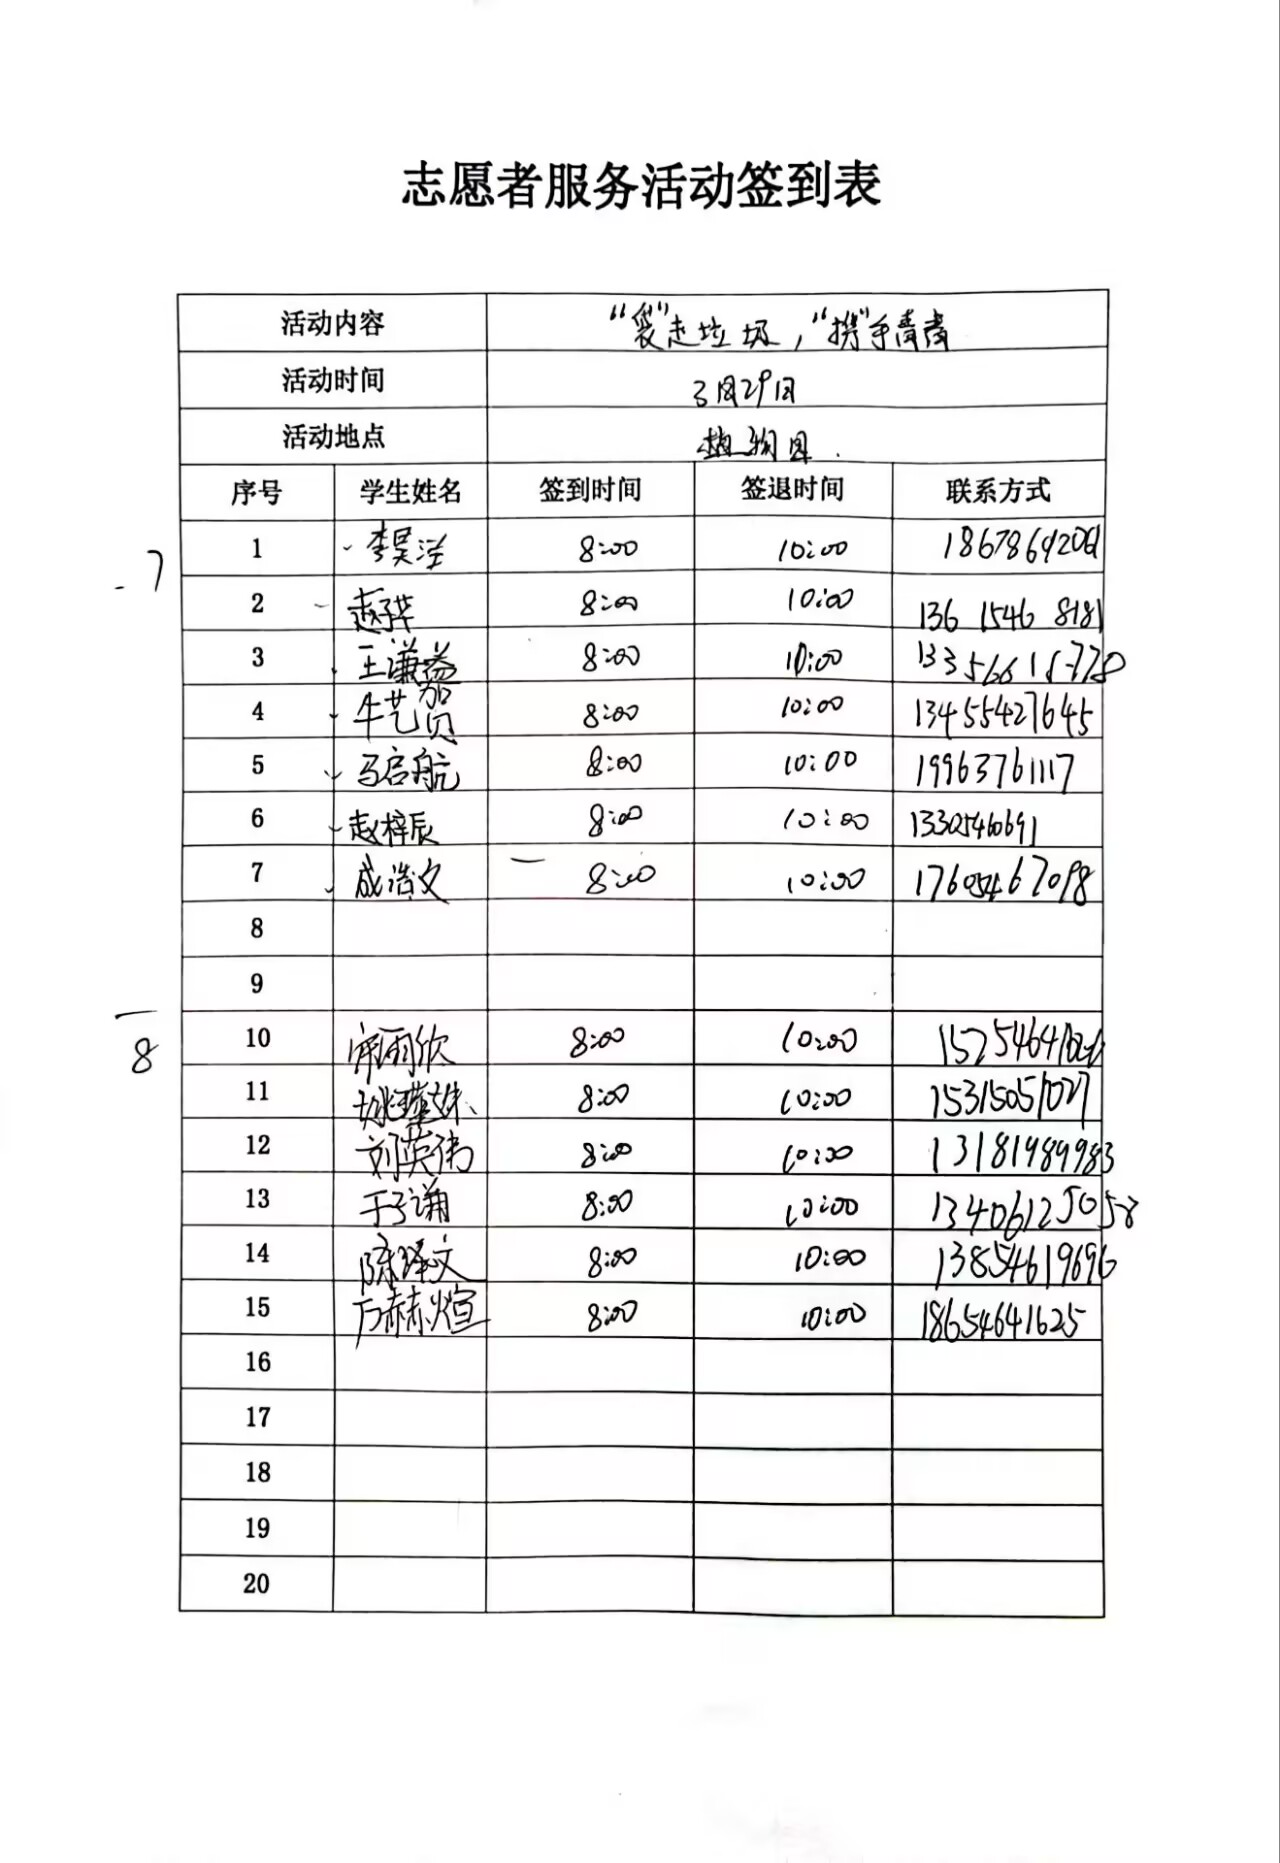 志愿者服务活动签到表
活动内容 "袋"走垃圾,"携"手青青
活动时间 3月29日
活动地点 植物园.
序号 学生姓名 签到时间 签退时间 联系方式
1 李昊泽 8:00 10:00
7
2 8:00 10:00 136 1546 8181
3 王谦益 8:00 10:00
4 牛艺贺 8:00 10:00 13455427645
5 马启航 8:00 10:00 19963761117
6 赵梓辰 8:00 10:00 13305460691
7 成浩文 8:00 10:00 17605467098
8
9
10 8:00 10:00
8
11 8:00 10:00 15315051027
12 刘英伟 8:00 10:00 13181989983
13 于子谦 8:00 10:00 13406125058
14 陈泽文 8:00 10:00 13854619696
15 万赫煊 8:00 10:00 18654641625
16
17
18
19
20